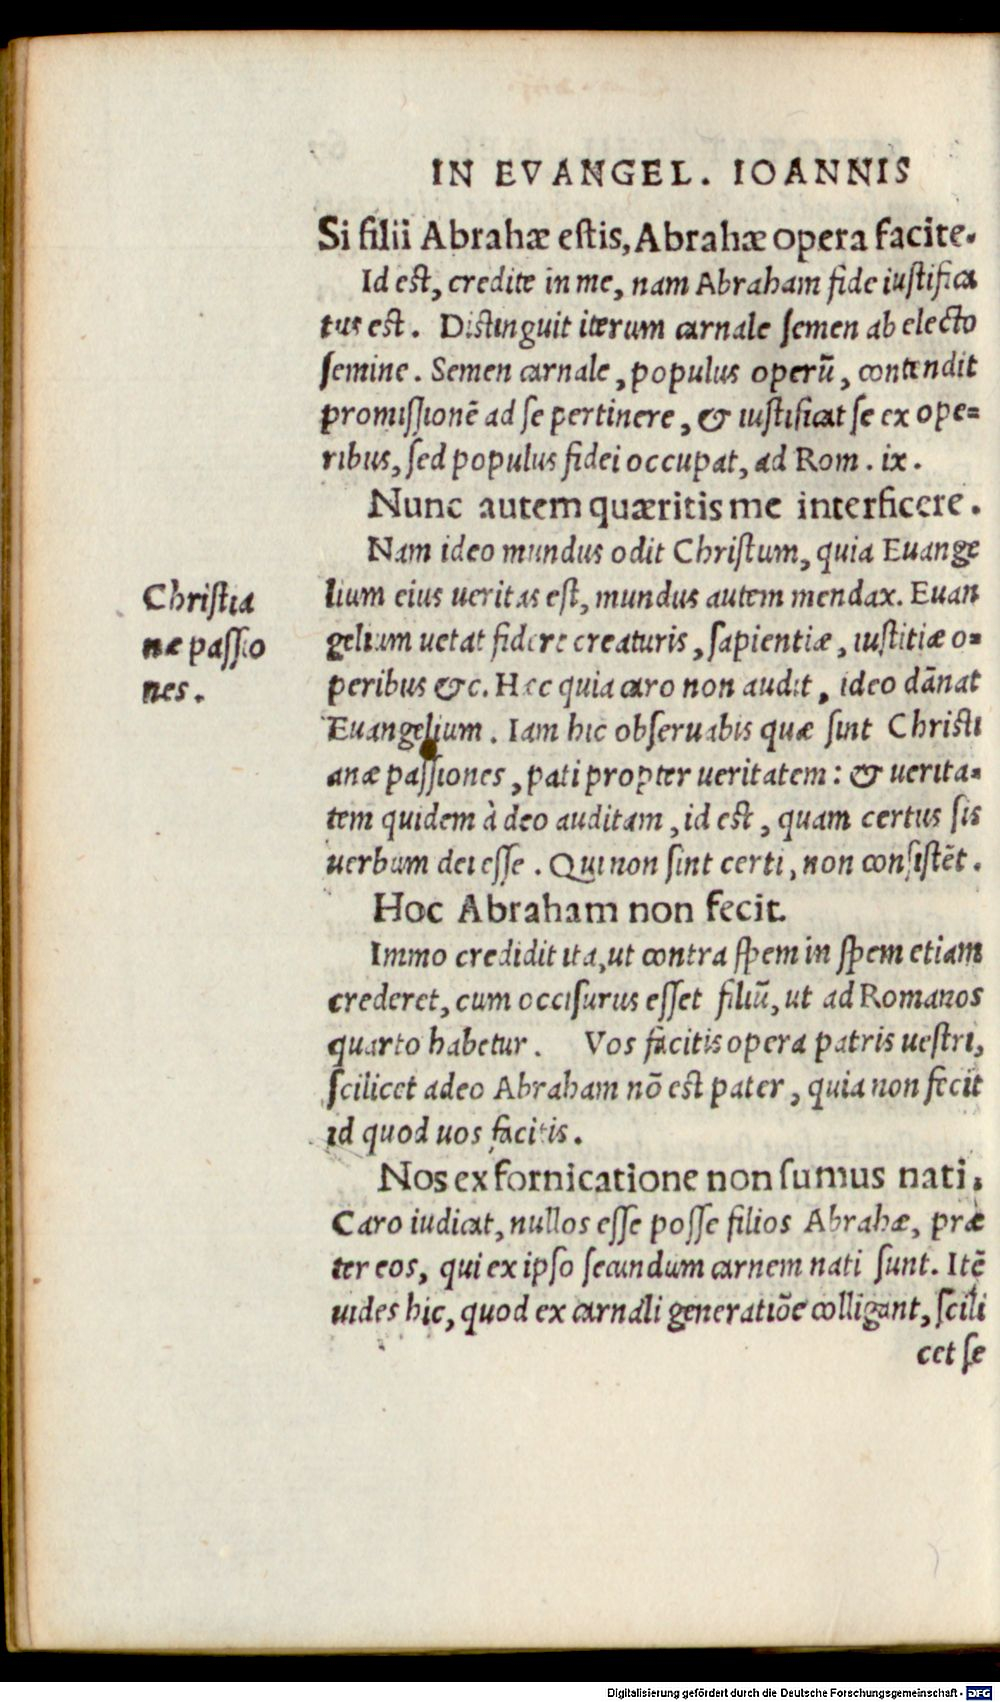 IN EVANGEL. IOANNIS
Si filii Abrahæ estis, Abrahæ opera facite.
Id est, credite in me, nam Abraham fide iustifica
tus est. Distinguit iterum carnale semen ab electo
semine. Semen carnale, populus operū, contendit
promissionē ad se pertinere, & iustificat se ex ope=
ribus, sed populus fidei occupat, ad Rom. ix.
Nunc autem quæritis me interficere.
Nam ideo mundus odit Christum, quia Euange
lium eius ueritas est, mundus autem mendax. Euan
gelium uetat fidere creaturis, sapientiæ, iustitiæ o=
peribus &c. Hæc quia caro non audit, ideo dānat
Euangelium. Iam hic obseruabis quæ sint Christi
anæ passiones, pati propter ueritatem: & uerita=
tem quidem à deo auditam, id est, quam certus sis
uerbum dei esse. Qui non sint certi, non consistēt.
Christia
næ passio
nes.
Hoc Abraham non fecit.
Immo credidit ita, ut contra spem in spem etiam
crederet, cum occisurus esset filiū, ut ad Romanos
quarto habetur. Vos facitis opera patris uestri,
scilicet adeo Abraham nō est pater, quia non fecit
id quod uos facitis.
Nos ex fornicatione non sumus nati,
Caro iudicat, nullos esse posse filios Abrahæ, præ
ter eos, qui ex ipso secundum carnem nati sunt. Itē
uides hic, quod ex carnali generatiōe colligant, scili
cet se
Digitalisierung gefördert durch die Deutsche Forschungsgemeinschaft - DFG